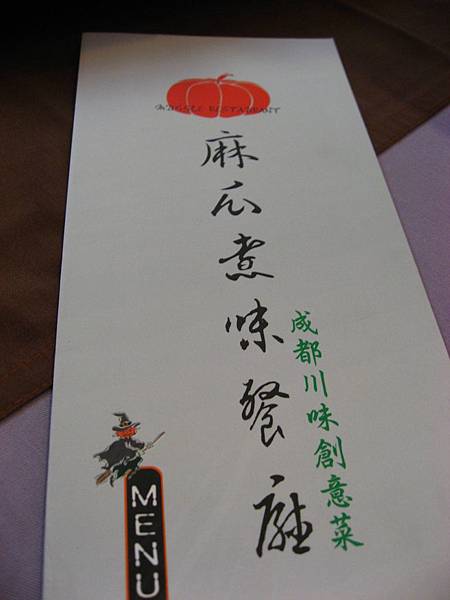 MUGGLE RESTAURANT
麻瓜煮味餐廳
成都川味創意菜
MENU